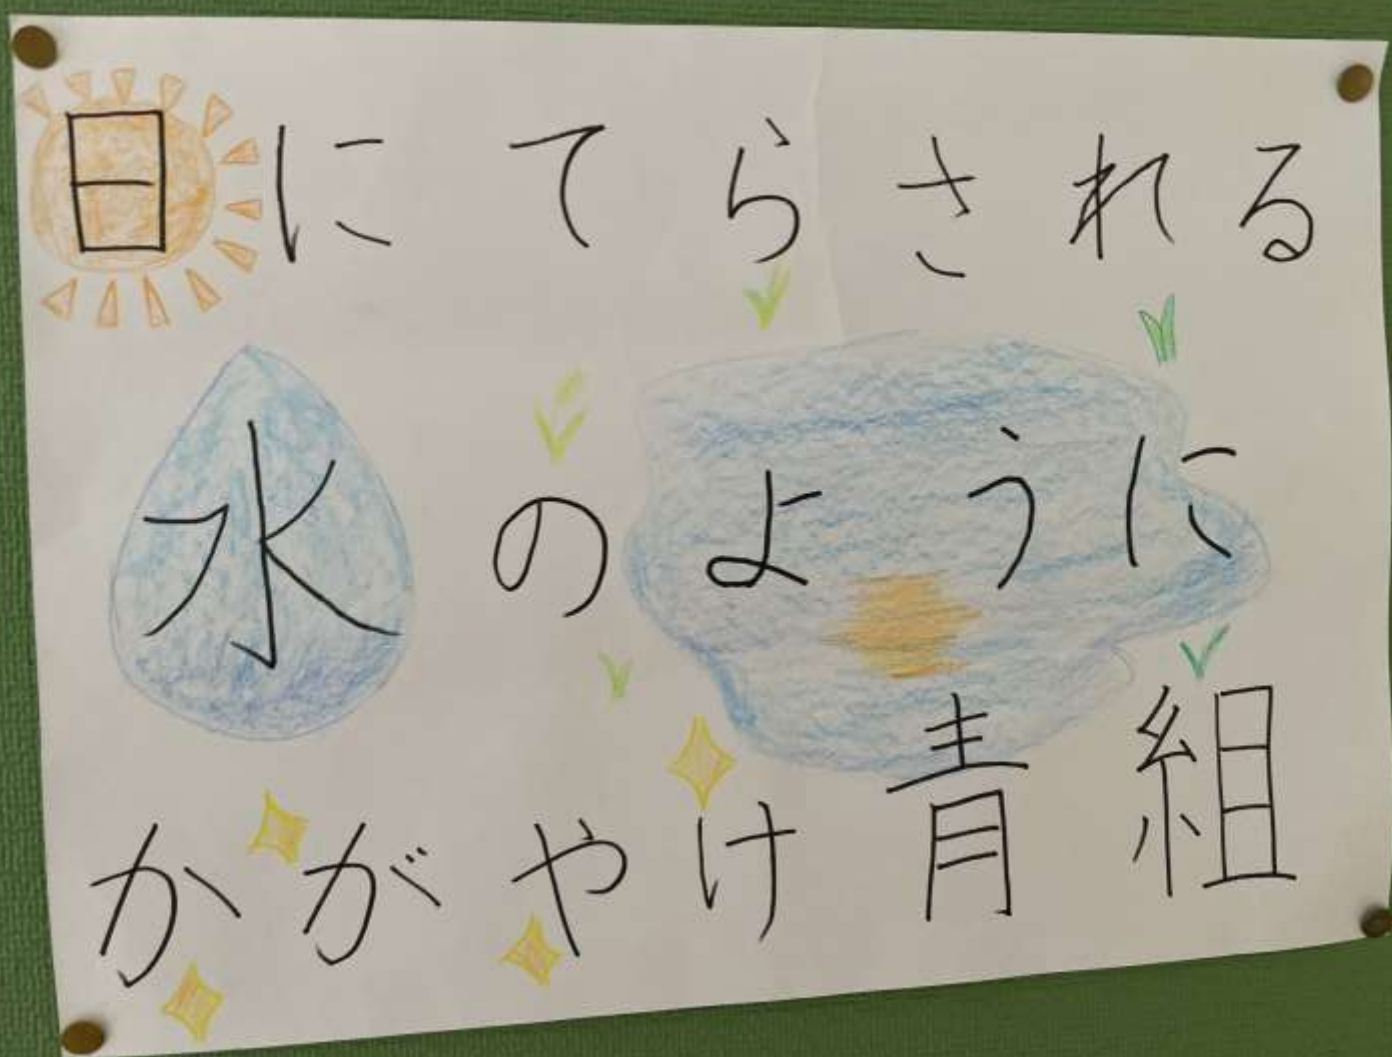 日にてらされる
水のように
かがやけ青組